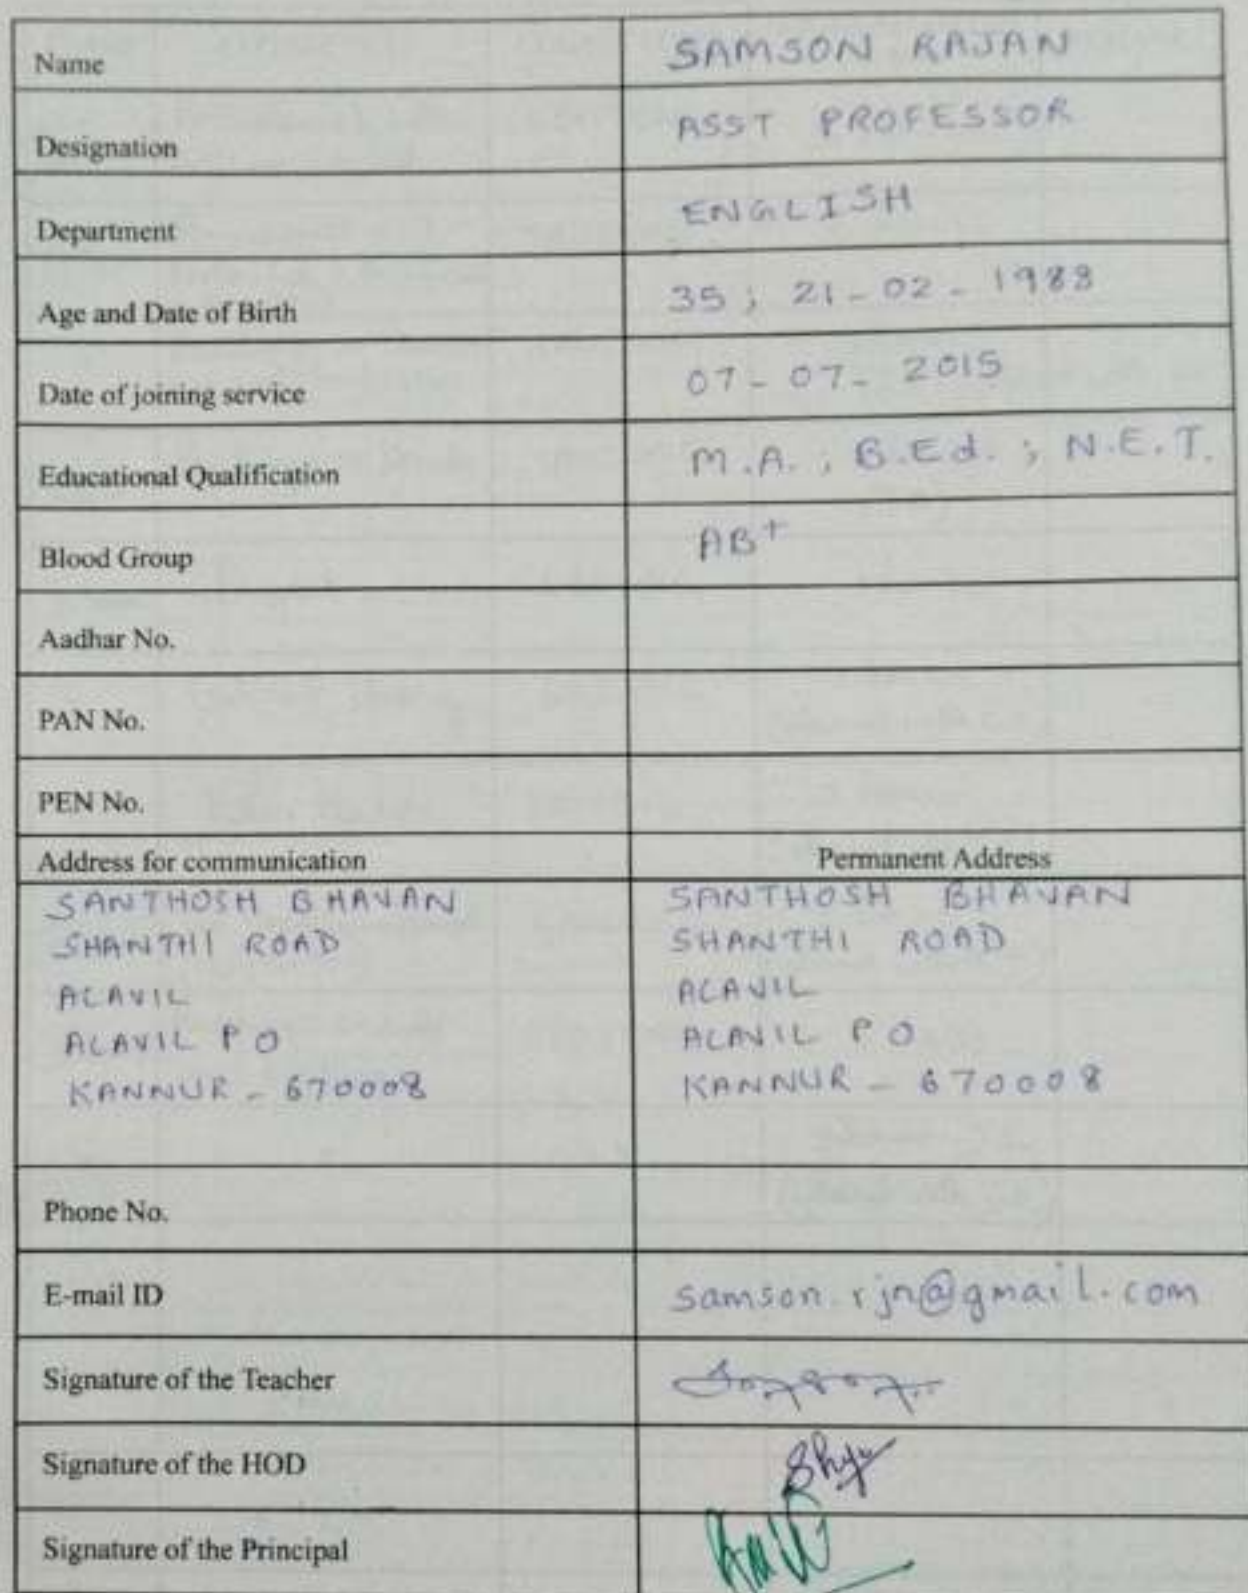 Name SAMSON RAJAN
Designation ASST PROFESSOR
Department ENGLISH
Age and Date of Birth 35; 21-02-1988
Date of joining service 07-07-2015
Educational Qualification M.A.; B.Ed.; N.E.T.
Blood Group AB+
Aadhar No.
PAN No.
PEN No.
Address for communication Permanent Address
SANTHOSH BHAVAN SANTHOSH BHAVAN
SHANTHI ROAD SHANTHI ROAD
ALAVIL ALAVIL
ALAVIL PO ALAVIL PO
KANNUR - 670008 KANNUR - 670008
Phone No.
E-mail ID samson.rjn@gmail.com
Signature of the Teacher
Signature of the HOD
Signature of the Principal